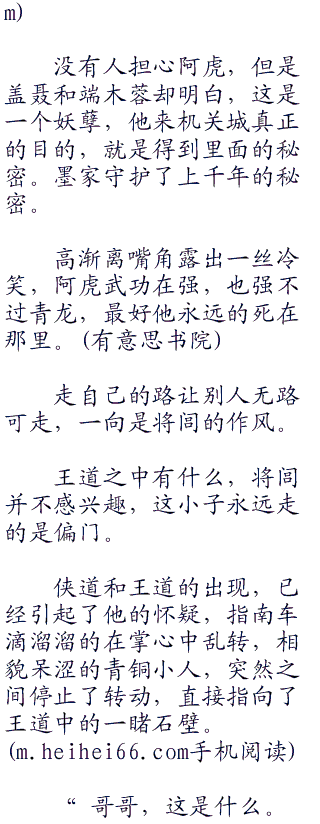 m)
没有人担心阿虎，但是
盖聂和端木蓉却明白，这是
一个妖孽，他来机关城真正
的目的，就是得到里面的秘
密。墨家守护了上千年的秘
密。
高渐离嘴角露出一丝冷
笑，阿虎武功在强，也强不
过青龙，最好他永远的死在
那里。(有意思书院)
走自己的路让别人无路
可走，一向是将闾的作风。
王道之中有什么，将闾
并不感兴趣，这小子永远走
的是偏门。
侠道和王道的出现，已
经引起了他的怀疑，指南车
滴溜溜的在掌心中乱转，相
貌呆涩的青铜小人，突然之
间停止了转动，直接指向了
王道中的一睹石壁。
(m.heihei66.com手机阅读)
“ 哥哥，这是什么。